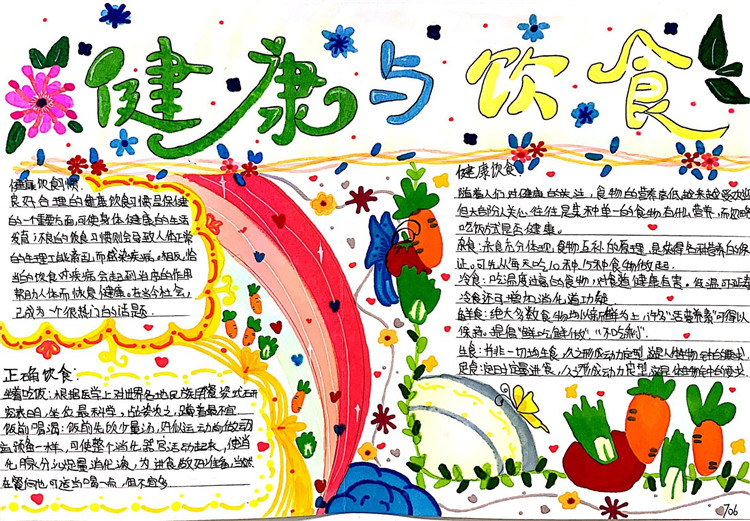 健康与饮食
健康饮食习惯.
良好合理的健康饮食习惯是保健
的一个重要方面,可使身体健康的生活
发育;不良的饮食习惯则会导致人体正常
的生理功能紊乱而感染疾病。相反,恰
当的饮食对疾病会起到治疗的作用
帮助人体而恢复健康。在当今社会,
已成为一个很热门的话题.
正确饮食:
坐着吃饭:根据医学上对世界各地民族用餐姿式研
究表明,坐位最科学,站姿次之,蹲着最不宜
饭前喝汤:饭前先饮少量汤,
一样,可使整个消化器官活动起来,使消
化腺分泌足量消化液,为进食做好准备,当然
在餐间也可适当喝一点,但不宜多
健康饮食:
随着人们对健康的关注,食物的营养高低
但大部份人关心往往是某种单一的食物有什么营养,而忽略
吃饭方式是否健康。
杂食:杂食充分体现食物互补的原理,是获得各种营养的保
证.可先从每天吃10种、15种食物做起.
冷食:吃温度过高的食物,对食道健康有害,低温可延寿
冷食还可增加消化道功能
鲜食:绝大多数食物均以新鲜为上,许多"活营养素"可得以
保持。提倡"鲜吃鲜做" "不吃剩".
生食:并非一切均生食,
106